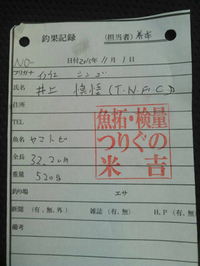 釣果記録 (担当者)
NO-
日付 2015 / 11 / 1 日
フリガナ イノウエ シンゴ
氏名 井上 慎悟 (T.N.F.C)
住所
TEL
魚拓・検量
つりぐの
米吉
魚名 ヤマトビ
全長 32.2cm
重量 520g
釣り場 エサ
新聞 (有,無,外) 雑誌 (有,無) H.P (有,無)
備考